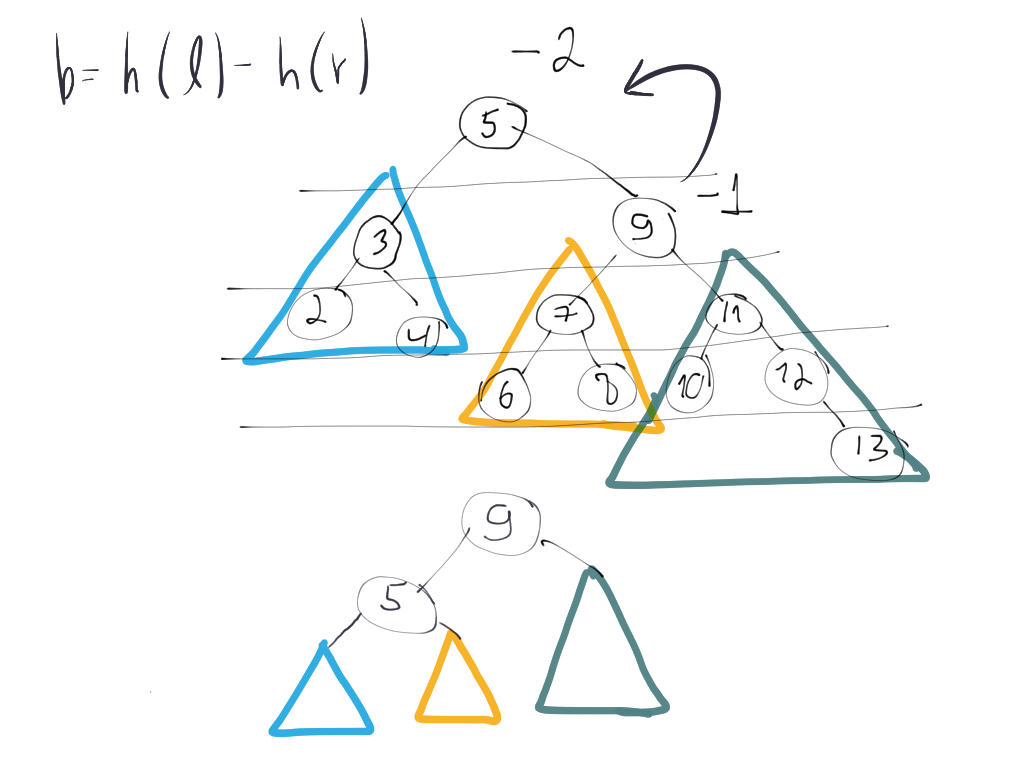 b= h(l) - h(r)
-2
5
-1
9
3
2
4
7
11
6
8
10
12
13
9
5